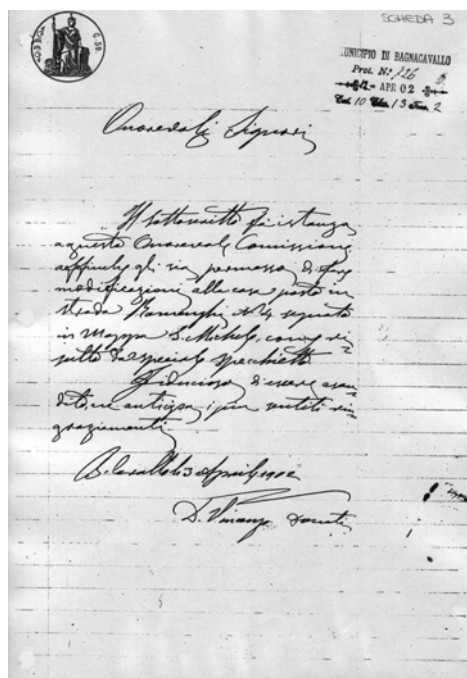 SCHEDA 3
C. 50
MUNICIPIO DI BAGNACAVALLO
Prot. N.° 726
APR 02
Onorevoli Signori
Il sottoscritto fa istanza
a questa Onorevole Comissione
affinche gli sia permesso di fare
modificazioni alla casa posta in
strada Ramenghi N. 4 segnata
in Mappa S. Michele, come ri=
sulta da speciale specchietto.
Fiducioso di essere esau=
dito, ne anticipa i piu sentiti rin=
graziamenti.
B.Cavallo li 3 Aprile 1902
D. Vincenzo Donati